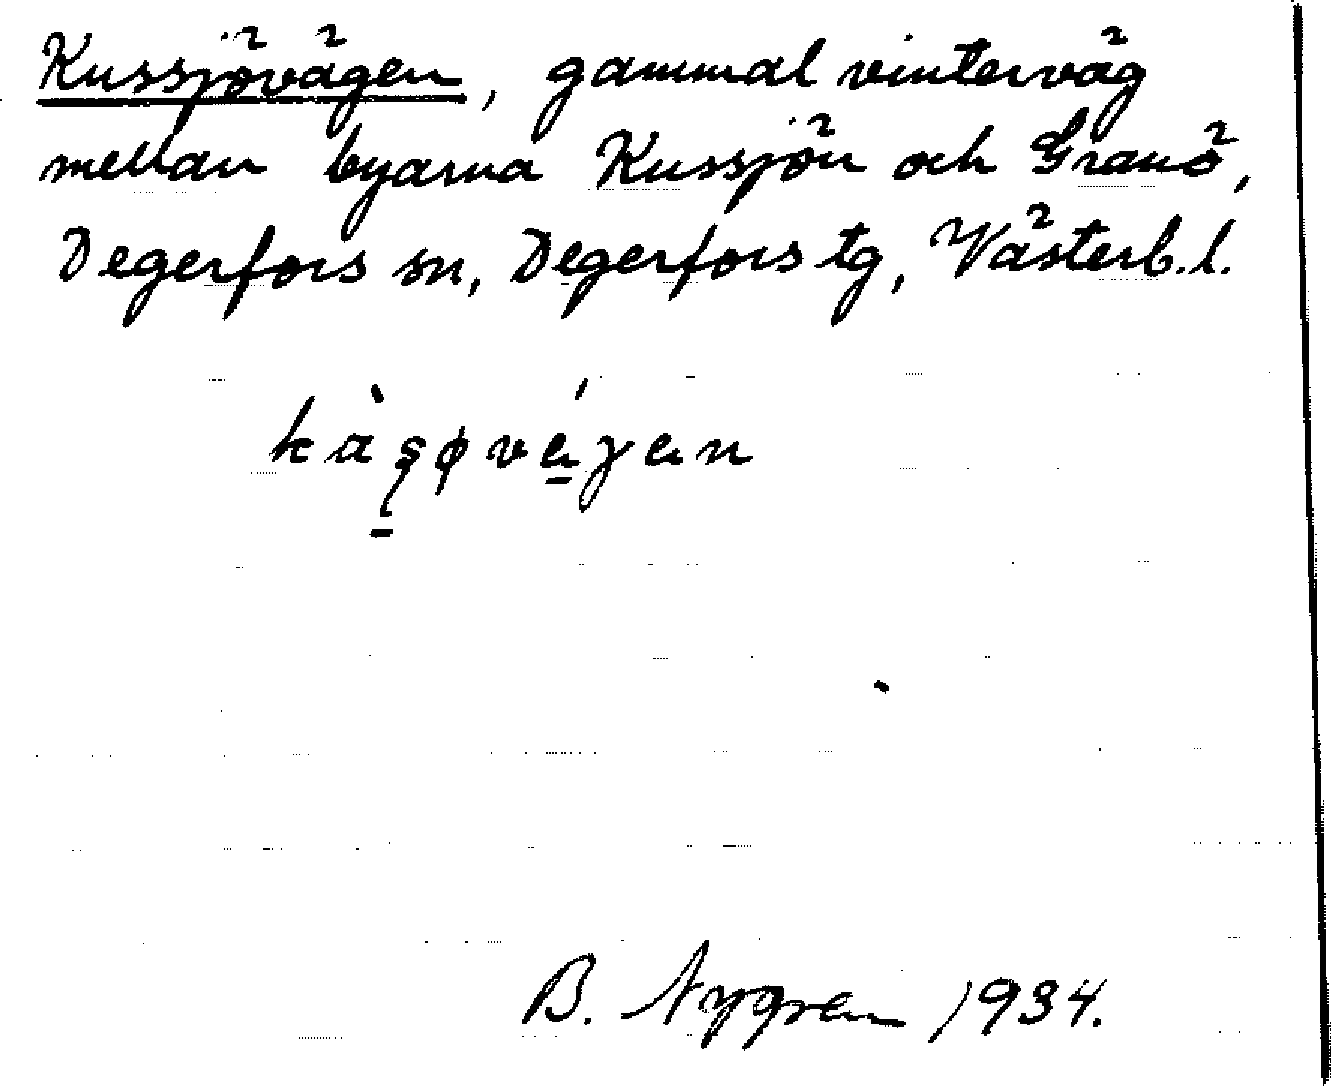 Kussjövägen, gammal vinterväg
mellan byarna Kussjön och Granö,
Degerfors sn, Degerfors tg, Västerb.l.
B. Nygren 1934.